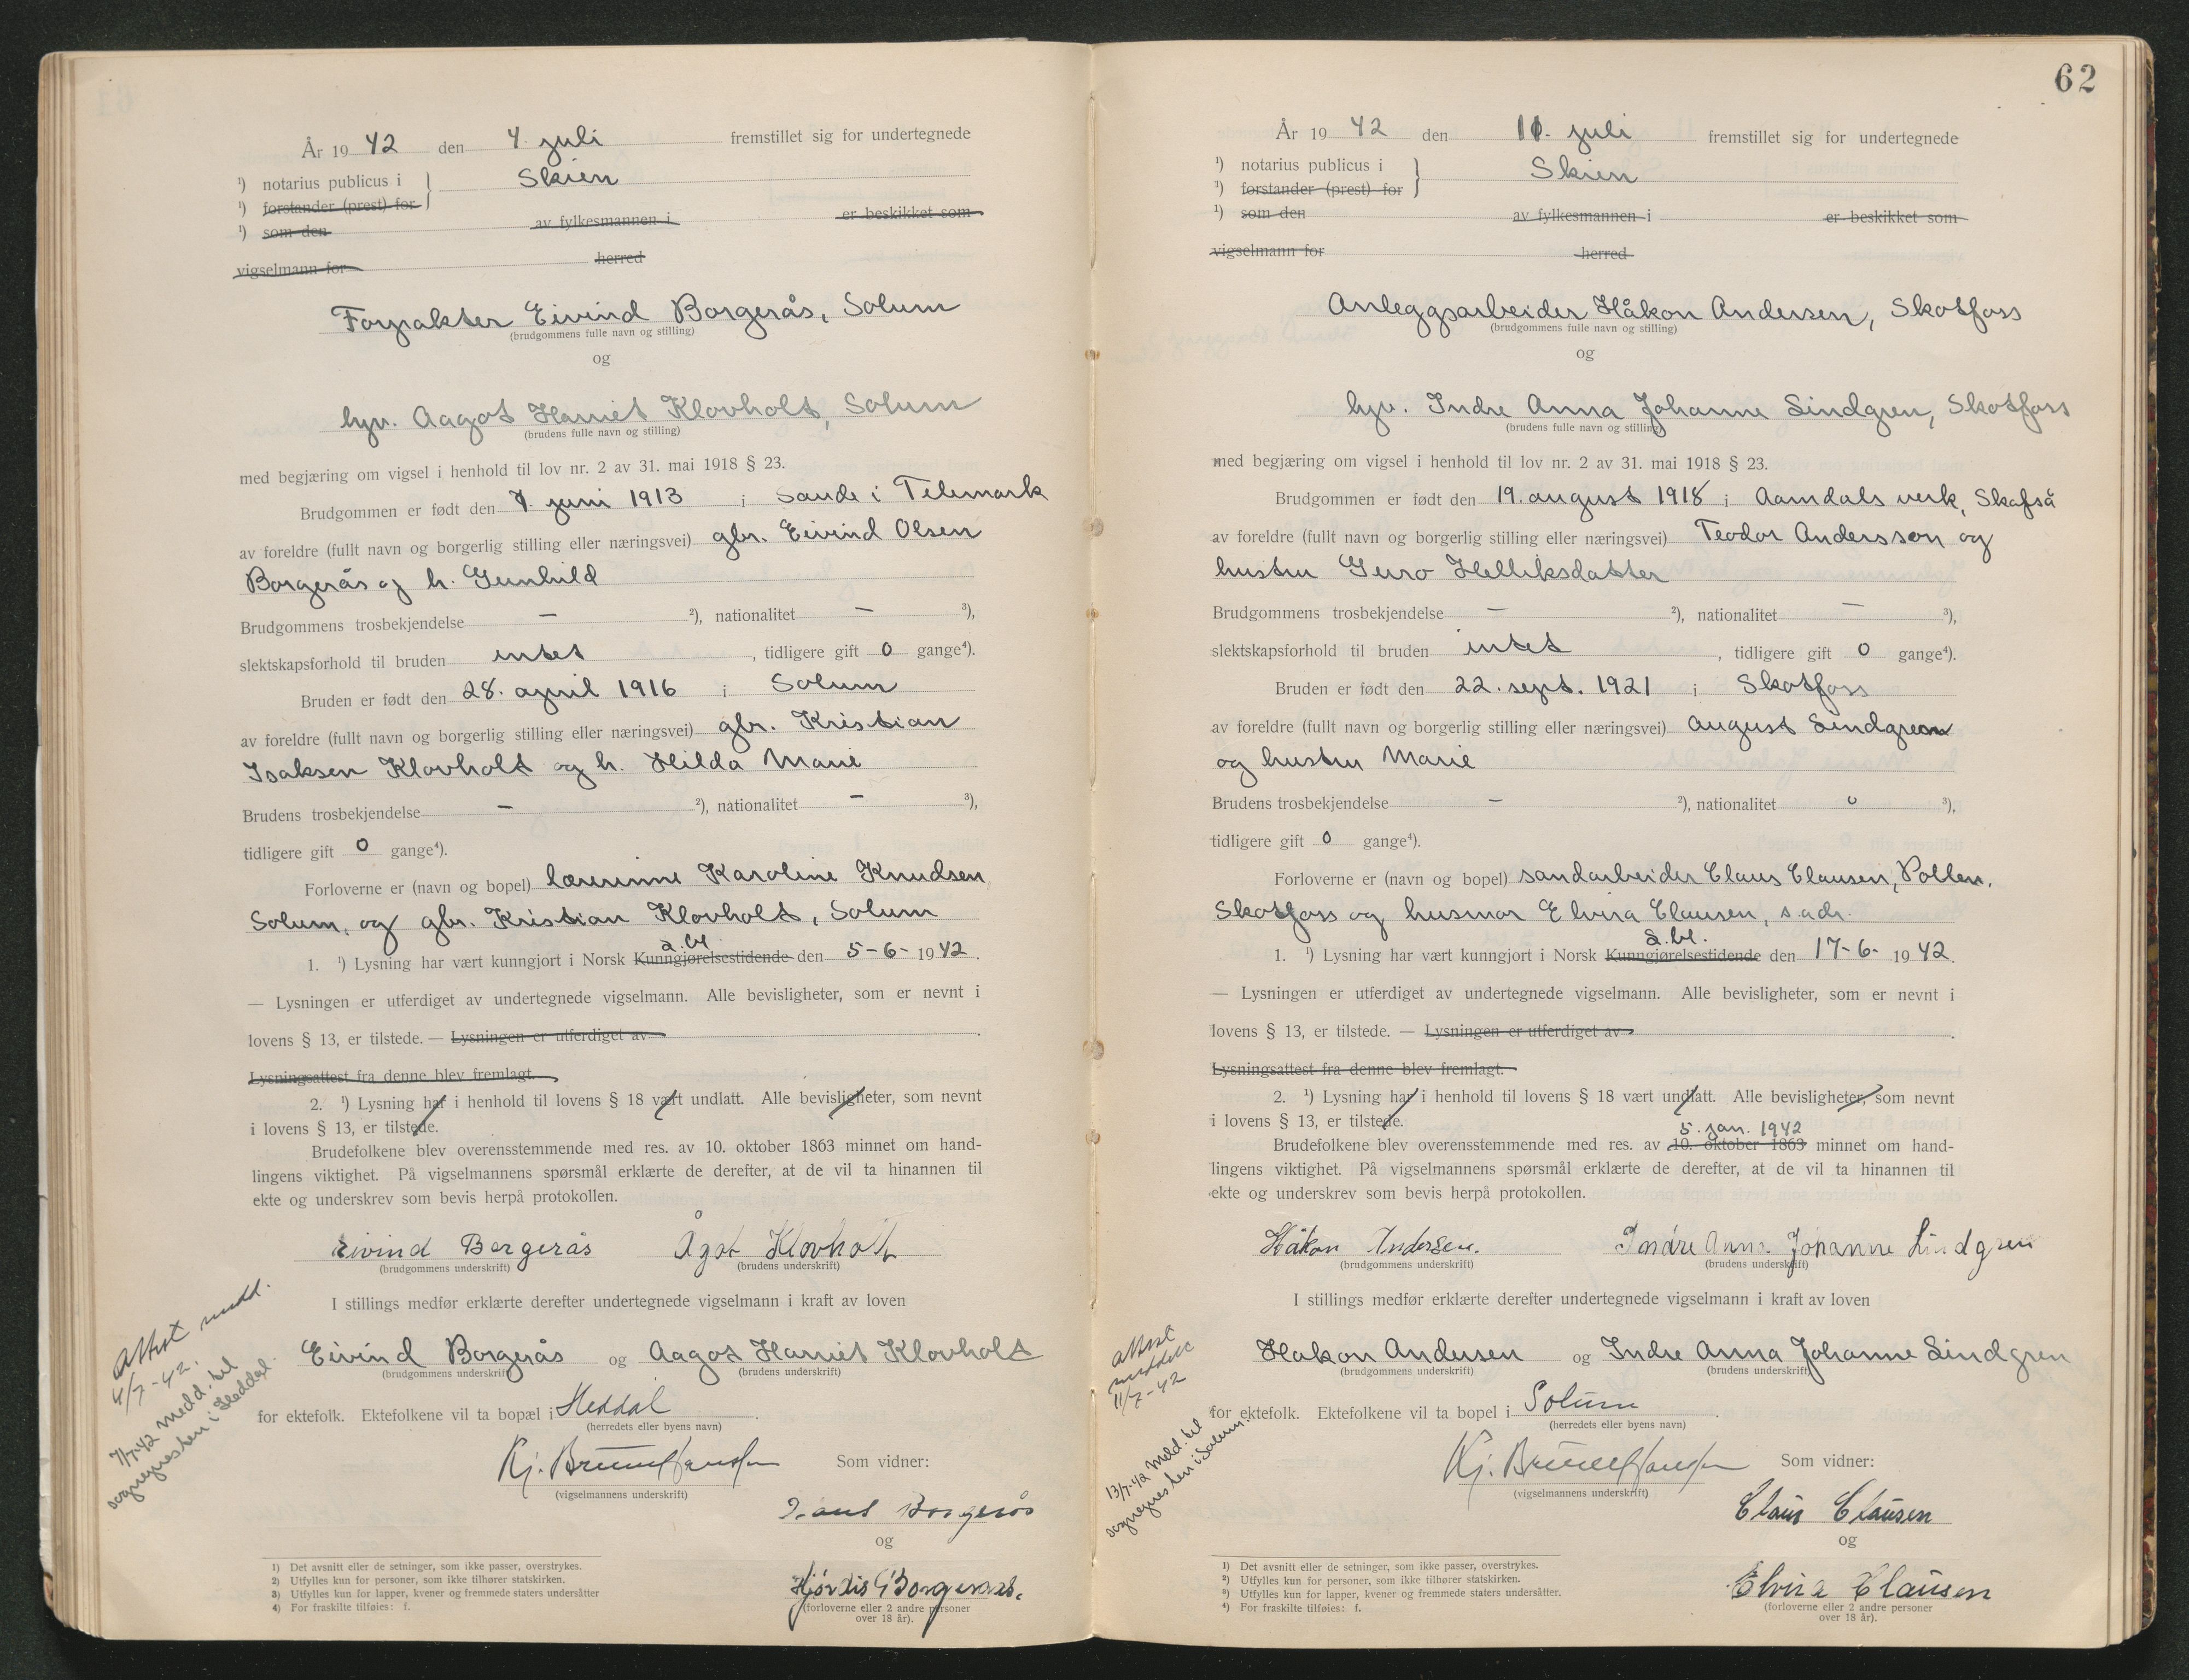 År 19 42 den 4. juli fremstillet sig for undertegnede
¹) notarius publicus i } Skien
¹) forstander (prest) for
¹) som den av fylkesmannen i er beskikket som
vigselmann for herred
Forpakter Eivind Borgerås, Solum
(brudgommens fulle navn og stilling)
og
hyv. Aagot Harriet Klovholt, Solum
(brudens fulle navn og stilling)
med begjæring om vigsel i henhold til lov nr. 2 av 31. mai 1918 § 23.
Brudgommen er født den 7. juni 1913 i Saude i Telemark
av foreldre (fullt navn og borgerlig stilling eller næringsvei) gbr. Eivind Olsen
Borgerås og h. Gunhild
Brudgommens trosbekjendelse — ²), nationalitet — ³),
slektskapsforhold til bruden intet, tidligere gift 0 gange⁴).
Bruden er født den 28. april 1916 i Solum
av foreldre (fullt navn og borgerlig stilling eller næringsvei) gbr. Kristian
Isaksen Klovholt og h. Hilda Marie
Brudens trosbekjendelse — ²), nationalitet — ³),
tidligere gift 0 gange⁴).
Forloverne er (navn og bopel) lærerinne Karoline Knudsen,
Solum, og gbr. Kristian Klovholt, Solum
a.bl.
1. ¹) Lysning har vært kunngjort i Norsk Kunngjørelsestidende den 5-6- 1942.
— Lysningen er utferdiget av undertegnede vigselmann. Alle bevisligheter, som er nevnt i
lovens § 13, er tilstede. — Lysningen er utferdiget av
Lysningsattest fra denne blev fremlagt.
2. ¹) Lysning har i henhold til lovens § 18 vært undlatt. Alle bevisligheter, som nevnt
i lovens § 13, er tilstede.
Brudefolkene blev overensstemmende med res. av 10. oktober 1863 minnet om hand-
lingens viktighet. På vigselmannens spørsmål erklærte de derefter, at de vil ta hinannen til
ekte og underskrev som bevis herpå protokollen.
Eivind Borgerås Ågot Klovholt
(brudgommens underskrift) (brudens underskrift)
I stillings medfør erklærte derefter undertegnede vigselmann i kraft av loven
Eivind Borgerås og Aagot Harriet Klovholt
(brudgommens underskrift) (brudens underskrift)
for ektefolk. Ektefolkene vil ta bopæl i Heddal.
(herredets eller byens navn)
Attest medd.
4/7-42.
7/7-42 Medd. til
sognepresten i Heddal.
Kj. Som vidner:
(vigselmannens underskrift)
Borgerås
og
Hjørdis Borgeraas.
(forloverne eller 2 andre personer
over 18 år).
1) Det avsnitt eller de setninger, som ikke passer, overstrykes.
2) Utfylles kun for personer, som ikke tilhører statskirken.
3) Utfylles kun for lapper, kvener og fremmede staters undersåtter
4) For fraskilte tilføies: f.
62
År 19 42 den 11. juli fremstillet sig for undertegnede
¹) notarius publicus i } Skien
¹) forstander (prest) for
¹) som den av fylkesmannen i er beskikket som
vigselmann for herred
Anleggsarbeider Håkon Andersen, Skotfoss
(brudgommens fulle navn og stilling)
og
hyv. Indre Anna Johanne Lindgren, Skotfoss
(brudens fulle navn og stilling)
med begjæring om vigsel i henhold til lov nr. 2 av 31. mai 1918 § 23.
Brudgommen er født den 19. august 1918 i Aamdals verk, Skafså
av foreldre (fullt navn og borgerlig stilling eller næringsvei) Teodor Andersson og
hustru Guro Helliksdatter
Brudgommens trosbekjendelse — ²), nationalitet — ³),
slektskapsforhold til bruden intet, tidligere gift 0 gange⁴).
Bruden er født den 22. sept. 1921 i Skotfoss
av foreldre (fullt navn og borgerlig stilling eller næringsvei) August Lindgren
og hustru Marie
Brudens trosbekjendelse — ²), nationalitet ³),
tidligere gift 0 gange⁴).
Forloverne er (navn og bopel) sandarbeider Claus Clausen, Pollen,
Skotfoss og husmor Elvira Clausen, s.adr.
a.bl.
1. ¹) Lysning har vært kunngjort i Norsk Kunngjørelsestidende den 17-6- 1942.
— Lysningen er utferdiget av undertegnede vigselmann. Alle bevisligheter, som er nevnt i
lovens § 13, er tilstede. — Lysningen er utferdiget av.
Lysningsattest fra denne blev fremlagt.
2. ¹) Lysning har i henhold til lovens § 18 vært undlatt. Alle bevisligheter, som nevnt
i lovens § 13, er tilstede.
5. jan. 1942
Brudefolkene blev overensstemmende med res. av 10. oktober 1863 minnet om hand-
lingens viktighet. På vigselmannens spørsmål erklærte de derefter, at de vil ta hinannen til
ekte og underskrev som bevis herpå protokollen.
Håkon Andersen. Indre Anna Johanne Lindgren
(brudgommens underskrift) (brudens underskrift)
I stillings medfør erklærte derefter undertegnede vigselmann i kraft av loven
Håkon Andersen og Indre Anna Johanne Lindgren
(brudgommens underskrift) (brudens underskrift)
for ektefolk. Ektefolkene vil ta bopel i Solum.
(herredets eller byens navn)
Attest
meddelt
11/7-42
13/7-42 Meld. til
sognepresten i Solum.
Kj. Som vidner:
(vigselmannens underskrift)
Claus Clausen
og
Elvira Clausen
(forloverne eller 2 andre personer
over 18 år).
1) Det avsnitt eller de setninger, som ikke passer, overstrykes.
2) Utfylles kun for personer, som ikke tilhører statskirken.
3) Utfylles kun for lapper, kvener og fremmede staters undersåtter.
4) For fraskilte tilføies: f.